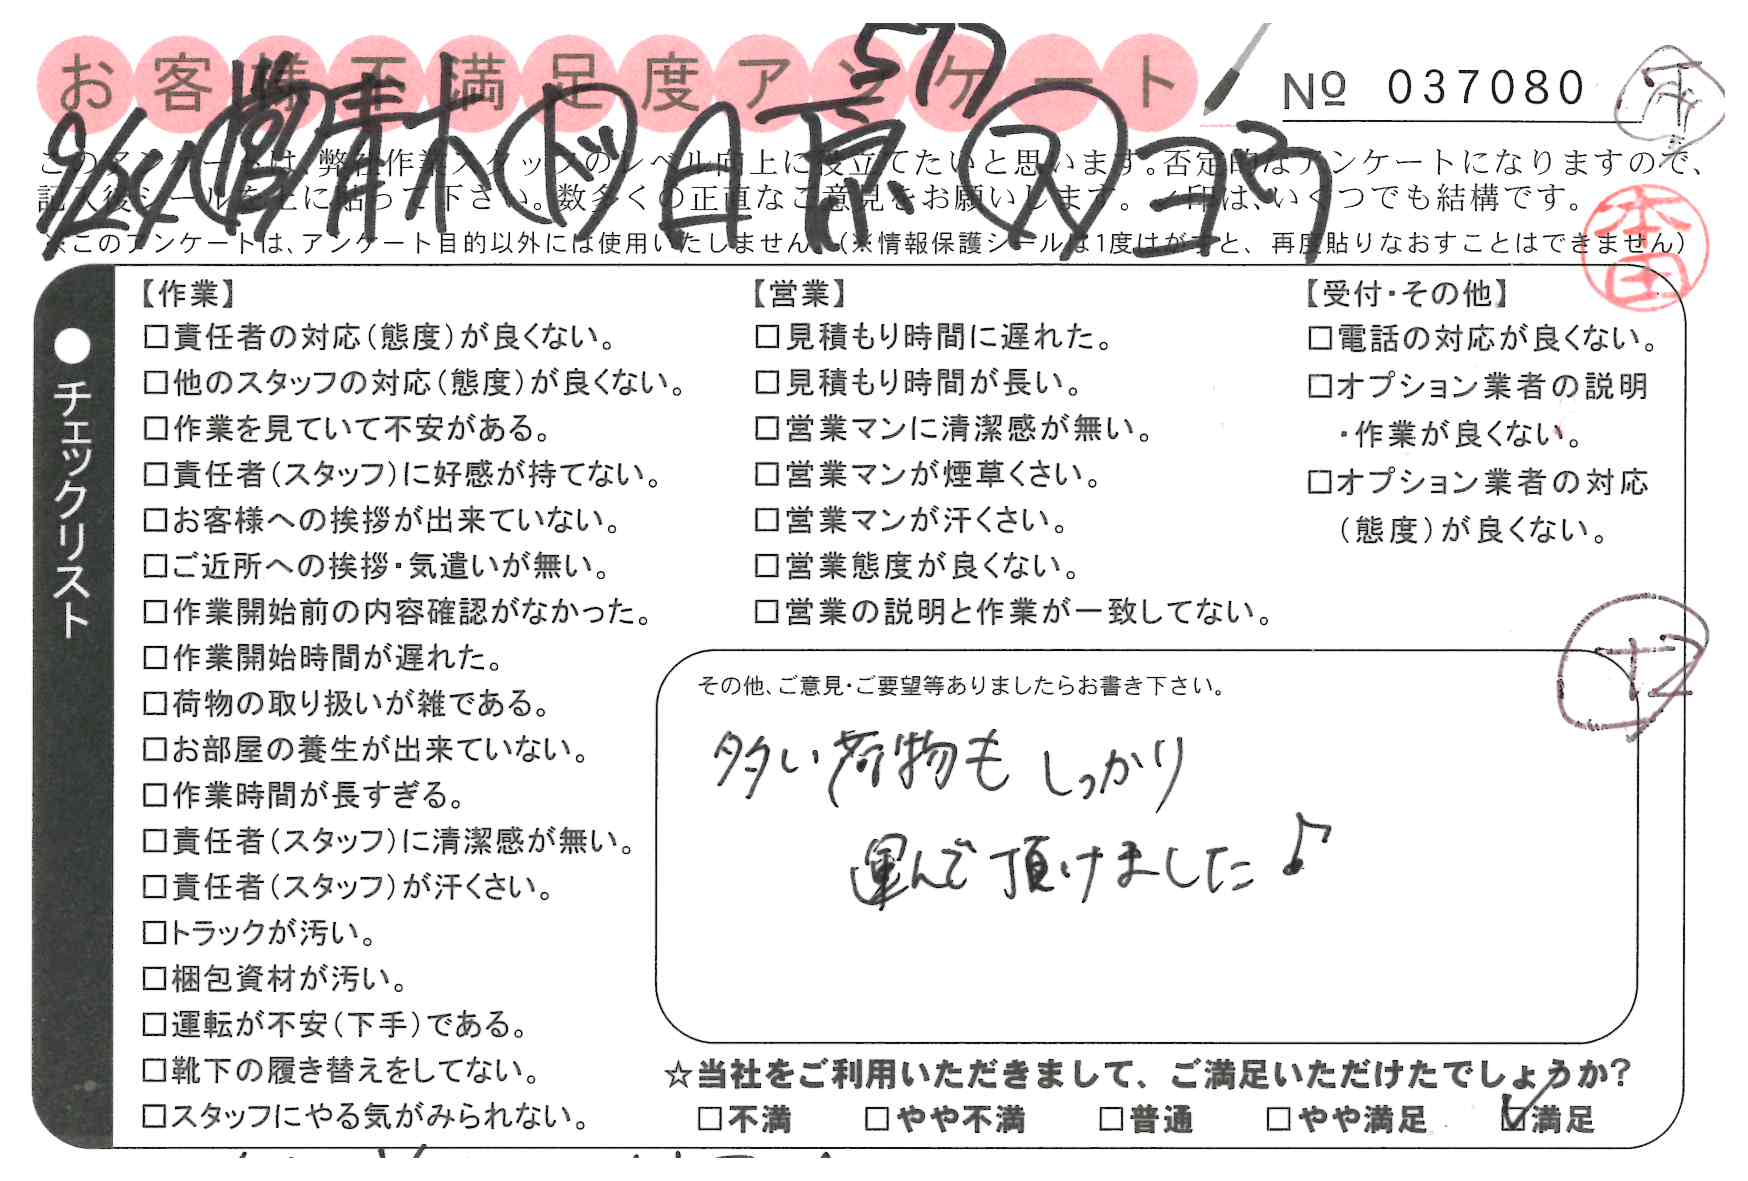 お客様不満足度アンケート
577
№ 037080
9/24 営 青木 ドツ 日 原 ス コウ
このアンケートは、弊社作業スタッフのレベル向上に役立てたいと思います。否定的なアンケートになりますので、
記入後シールを上に貼って下さい。数多くの正直なご意見をお願いします。✓印は、いくつでも結構です。
※このアンケートは、アンケート目的以外には使用いたしません。（※情報保護シールは1度はがすと、再度貼りなおすことはできません）
本田
●チェックリスト
【作業】
□責任者の対応（態度）が良くない。
□他のスタッフの対応（態度）が良くない。
□作業を見ていて不安がある。
□責任者（スタッフ）に好感が持てない。
□お客様への挨拶が出来ていない。
□ご近所への挨拶・気遣いが無い。
□作業開始前の内容確認がなかった。
□作業開始時間が遅れた。
□荷物の取り扱いが雑である。
□お部屋の養生が出来ていない。
□作業時間が長すぎる。
□責任者（スタッフ）に清潔感が無い。
□責任者（スタッフ）が汗くさい。
□トラックが汚い。
□梱包資材が汚い。
□運転が不安（下手）である。
□靴下の履き替えをしてない。
□スタッフにやる気がみられない。
【営業】
□見積もり時間に遅れた。
□見積もり時間が長い。
□営業マンに清潔感が無い。
□営業マンが煙草くさい。
□営業マンが汗くさい。
□営業態度が良くない。
□営業の説明と作業が一致してない。
【受付・その他】
□電話の対応が良くない。
□オプション業者の説明
・作業が良くない。
□オプション業者の対応
（態度）が良くない。
その他、ご意見・ご要望等ありましたらお書き下さい。
多い荷物も しっかり
運んで頂けました♪
☆当社をご利用いただきまして、ご満足いただけたでしょうか？
□不満 □やや不満 □普通 □やや満足 ☑満足